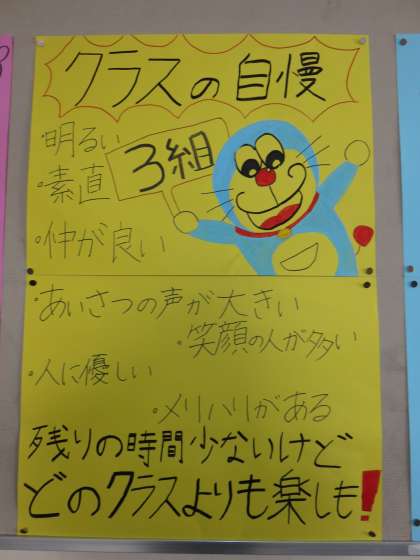 クラスの自慢
・明るい
3組
・素直
・仲が良い
・あいさつの声が大きい
・笑顔の人が多い
・人に優しい
・メリハリがある
残りの時間少ないけど
どのクラスよりも楽しも!